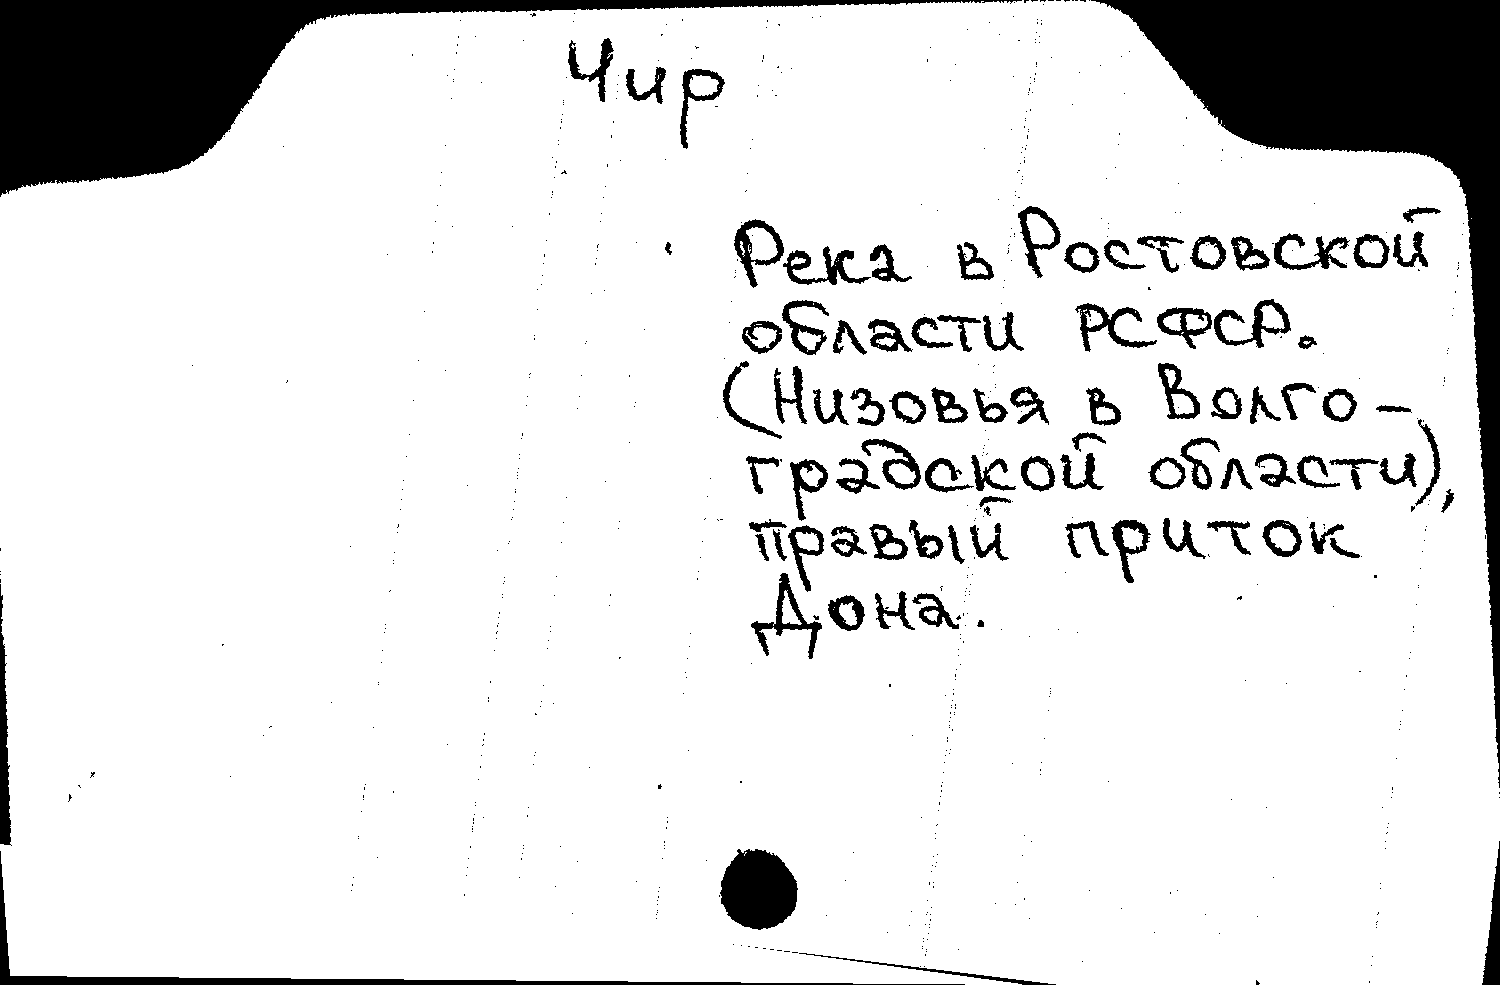 Чир
Река в Ростовской
области РСФСР.
(Низовья в Волго-
градской области),
правый приток
Дона.